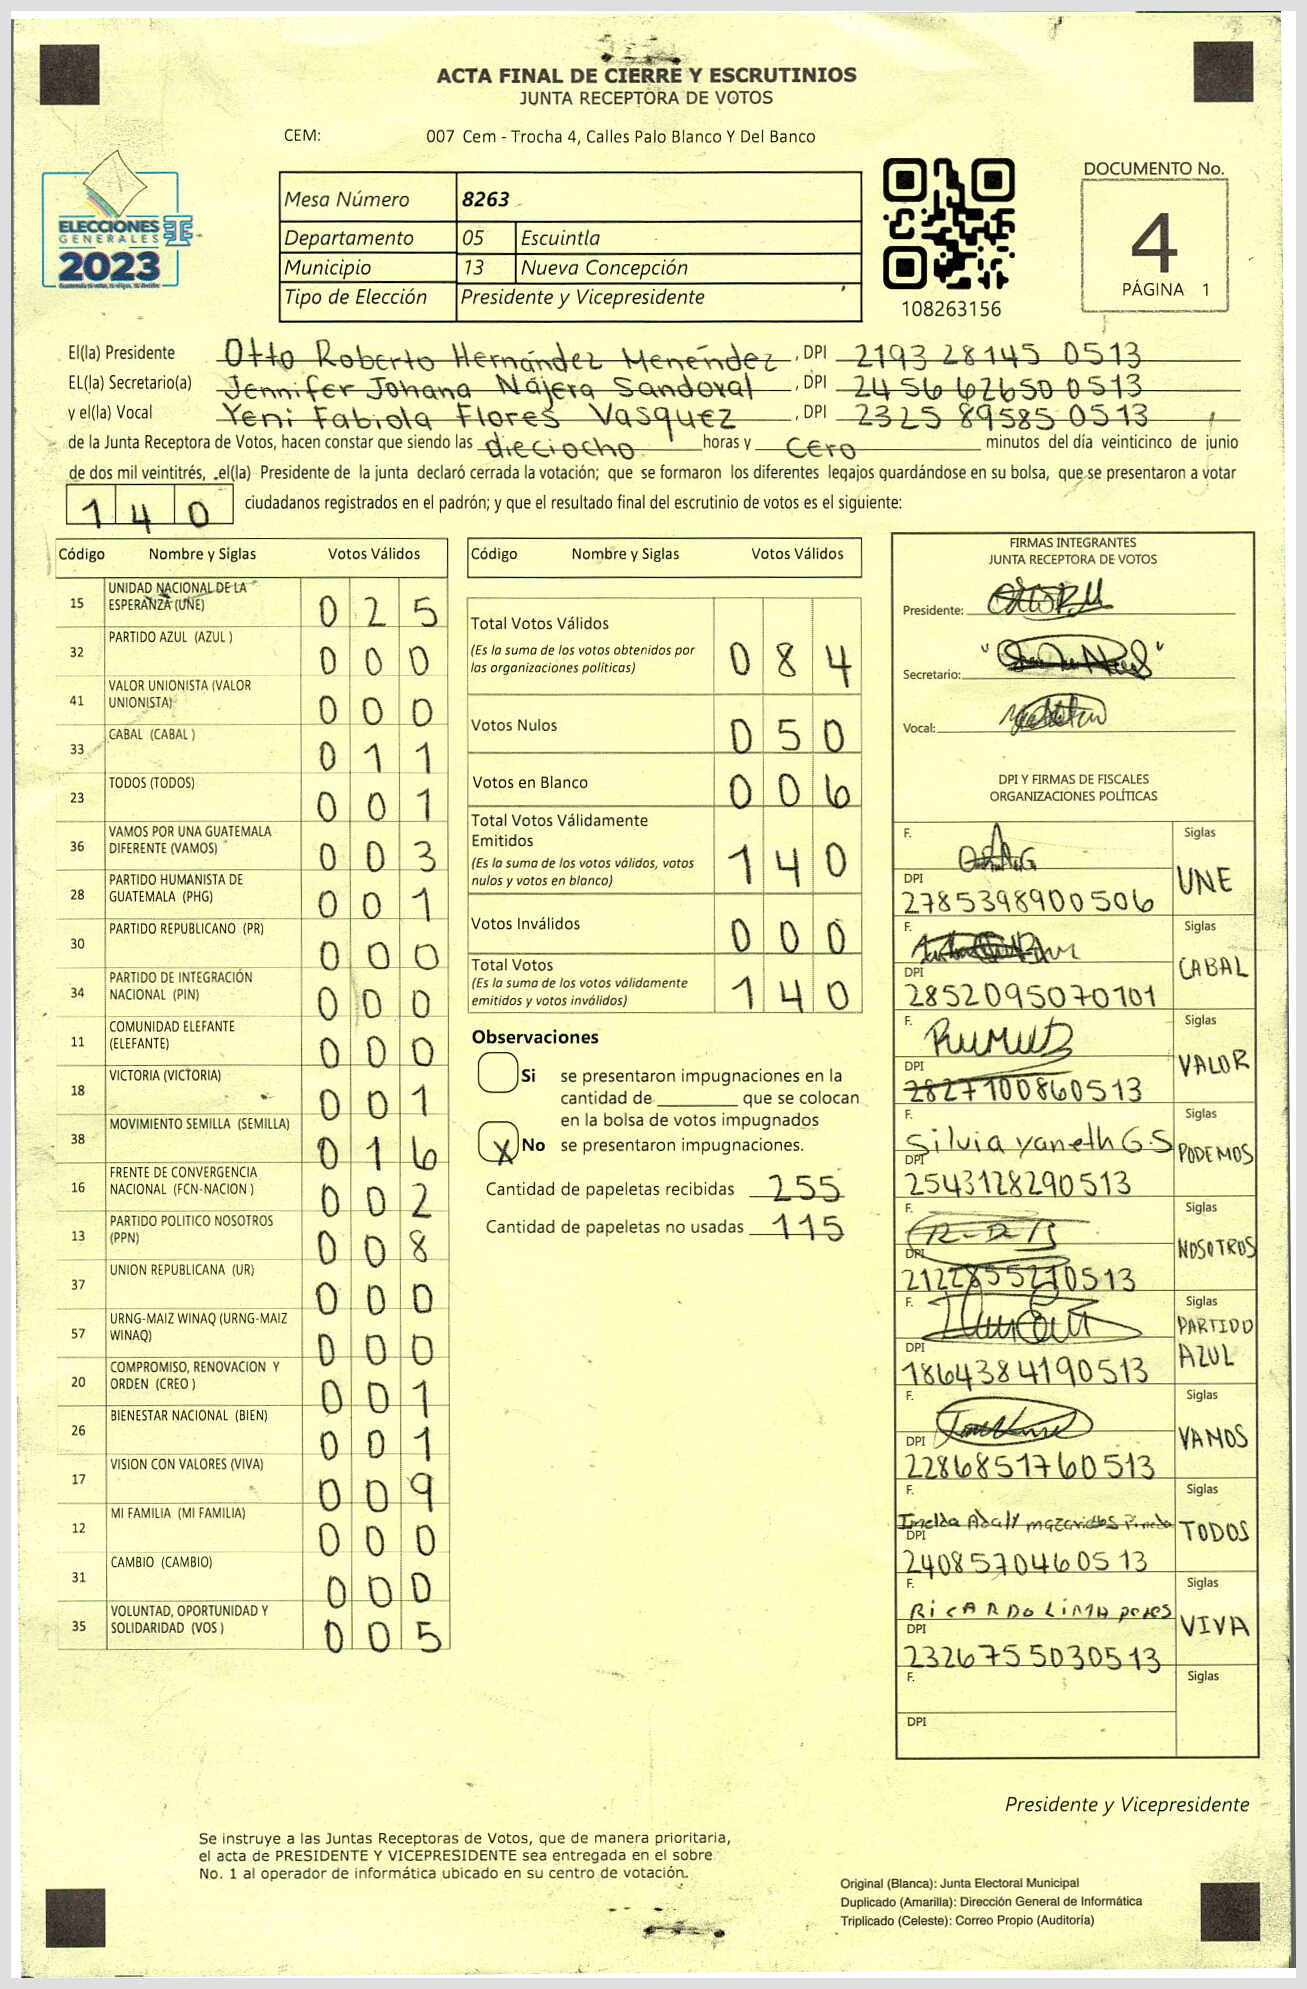 ACTA FINAL DE CIERRE Y ESCRUTINIOS
JUNTA RECEPTORA DE VOTOS
CEM: 007 Cem - Trocha 4, Calles Palo Blanco Y Del Banco
ELECCIONES
GENERALES
2023
Mesa Número 8263
Departamento 05 Escuintla
Municipio 13 Nueva Concepción
Tipo de Elección Presidente y Vicepresidente
108263156
DOCUMENTO No.
4
PÁGINA 1
El(la) Presidente Otto Roberto Hernández Menéndez, DPI 2193 28145 0513
EL(la) Secretario(a) Jennifer Johana Nájera Sandoval, DPI 2456 62650 0513
y el(la) Vocal Yeni Fabiola Flores Vasquez, DPI 2325 89585 0513
de la Junta Receptora de Votos, hacen constar que siendo las dieciocho horas y cero minutos del día veinticinco de junio
de dos mil veintitrés, el(la) Presidente de la junta declaró cerrada la votación; que se formaron los diferentes legajos guardándose en su bolsa, que se presentaron a votar
140 ciudadanos registrados en el padrón; y que el resultado final del escrutinio de votos es el siguiente:
Código Nombre y Siglas Votos Válidos
15 UNIDAD NACIONAL DE LA ESPERANZA (UNE) 025
32 PARTIDO AZUL (AZUL ) 000
41 VALOR UNIONISTA (VALOR UNIONISTA) 000
33 CABAL (CABAL ) 011
23 TODOS (TODOS) 001
36 VAMOS POR UNA GUATEMALA DIFERENTE (VAMOS) 003
28 PARTIDO HUMANISTA DE GUATEMALA (PHG) 001
30 PARTIDO REPUBLICANO (PR) 000
34 PARTIDO DE INTEGRACIÓN NACIONAL (PIN) 000
11 COMUNIDAD ELEFANTE (ELEFANTE) 000
18 VICTORIA (VICTORIA) 001
38 MOVIMIENTO SEMILLA (SEMILLA) 016
16 FRENTE DE CONVERGENCIA NACIONAL (FCN-NACION ) 002
13 PARTIDO POLITICO NOSOTROS (PPN) 008
37 UNION REPUBLICANA (UR) 000
57 URNG-MAIZ WINAQ (URNG-MAIZ WINAQ) 000
20 COMPROMISO, RENOVACION Y ORDEN (CREO ) 001
26 BIENESTAR NACIONAL (BIEN) 001
17 VISION CON VALORES (VIVA) 009
12 MI FAMILIA (MI FAMILIA) 000
31 CAMBIO (CAMBIO) 000
35 VOLUNTAD, OPORTUNIDAD Y SOLIDARIDAD (VOS ) 005
Código Nombre y Siglas Votos Válidos
Total Votos Válidos 084
(Es la suma de los votos obtenidos por
las organizaciones políticas)
Votos Nulos 050
Votos en Blanco 006
Total Votos Válidamente
Emitidos 140
(Es la suma de los votos válidos, votos
nulos y votos en blanco)
Votos Inválidos 000
Total Votos 140
(Es la suma de los votos válidamente
emitidos y votos inválidos)
Observaciones
Si se presentaron impugnaciones en la
cantidad de ________ que se colocan
en la bolsa de votos impugnados
X No se presentaron impugnaciones.
Cantidad de papeletas recibidas 255
Cantidad de papeletas no usadas 115
FIRMAS INTEGRANTES
JUNTA RECEPTORA DE VOTOS
Presidente:
Secretario:
Vocal:
DPI Y FIRMAS DE FISCALES
ORGANIZACIONES POLÍTICAS
F. Siglas
UNE
DPI
2785398900506
F. Siglas
CABAL
DPI
2852095070101
F. Siglas
VALOR
DPI
2827100860513
F. Siglas
Silvia yaneth G.S PODEMOS
DPI
2543128290513
F. Siglas
NOSOTROS
DPI
2122855270513
F. Siglas
PARTIDO
AZUL
DPI
1864384190513
F. Siglas
VAMOS
DPI
2286851760513
F. Siglas
Imelda TODOS
DPI
2408570460513
F. Siglas
RiCARDO LiMA peres VIVA
DPI
2326755030513
F. Siglas
DPI
Presidente y Vicepresidente
Se instruye a las Juntas Receptoras de Votos, que de manera prioritaria,
el acta de PRESIDENTE Y VICEPRESIDENTE sea entregada en el sobre
No. 1 al operador de informática ubicado en su centro de votación.
Original (Blanca): Junta Electoral Municipal
Duplicado (Amarilla): Dirección General de Informática
Triplicado (Celeste): Correo Propio (Auditoría)